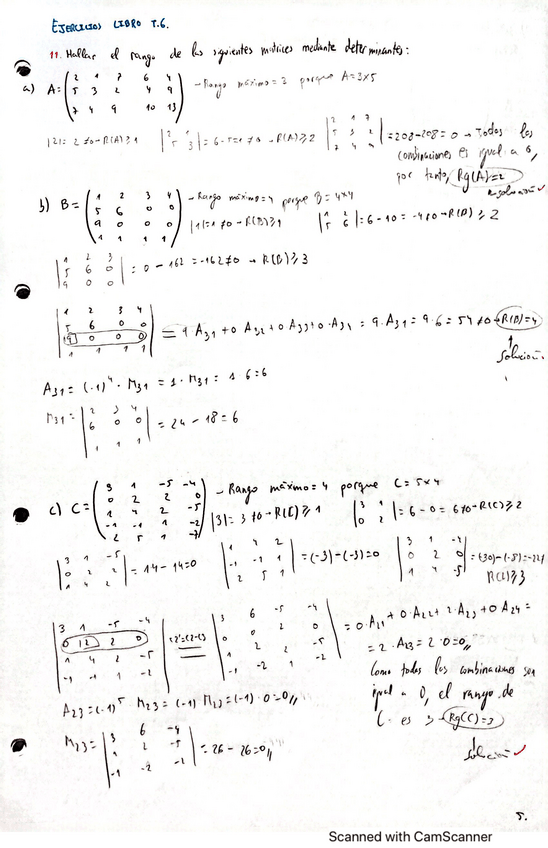 EJERCICIOS LIBRO T.6.
11. Hallar el rango de las siguientes matrices mediante determinantes:
a) A = ( 2 1 7 6 4 - Rango máximo = 3 porque A = 3x5
5 3 2 4 9
7 4 9 10 13 )
|2| = 2 ≠ 0 → R(A) ≥ 1 | 2 1 / 5 3 | = 6 - 5 = 1 ≠ 0 → R(A) ≥ 2 | 2 1 7 / 5 3 2 / 7 4 9 | = 208 - 208 = 0 → Todas las
combinaciones es igual a 0,
por tanto, Rg(A) = 2
solución ✓
b) B = ( 1 2 3 4 - Rango máximo = 4 porque B = 4x4
5 6 0 0
9 0 0 0 |1| = 1 ≠ 0 → R(B) ≥ 1 | 1 2 / 5 6 | = 6 - 10 = -4 ≠ 0 → R(B) ≥ 2
1 1 1 1 )
| 1 2 3 / 5 6 0 / 9 0 0 | = 0 - 162 = -162 ≠ 0 → R(B) ≥ 3
| 1 2 3 4
5 6 0 0
9 0 0 0 | = 9 A31 + 0 A32 + 0 A33 + 0 A34 = 9 · A31 = 9 · 6 = 54 ≠ 0 → R(B) = 4
1 1 1 1
Solución.
A31 = (-1)⁴ · M31 = 1 · M31 = 1 6 = 6
M31 = | 2 3 4 / 6 0 0 / 1 1 1 | = 24 - 18 = 6
c) C = ( 3 1 -5 -4 - Rango máximo = 4 porque C = 5x4
0 2 2 0
1 4 2 -5 |3| = 3 ≠ 0 → R(C) ≥ 1 | 3 1 / 0 2 | = 6 - 0 = 6 ≠ 0 → R(C) ≥ 2
-1 -1 1 -2
2 5 1 -7 )
| 3 1 -5 / 0 2 2 / 1 4 2 | = 14 - 14 = 0 | 1 4 2 / -1 -1 1 / 2 5 1 | = (-3) - (-3) = 0 | 3 1 -4 / 0 2 0 / 1 4 -5 | = (-30) - (-8) =
R(C) ≥ 3
| 3 1 -5 -4 / 0 2 2 0 / 1 4 2 -5 / -1 -1 1 -2 | = | 3 6 -5 -4 / 0 0 2 0 / 1 2 2 -5 / -1 -2 1 -2 | = 0 · A21 + 0 A22 + 2 · A23 + 0 A24 =
= 2 · A23 = 2 · 0 = 0,,
Como todas las combinaciones son
igual a 0, el rango de
A23 = (-1)⁵ M23 = (-1) M23 = (-1) · 0 = 0,,
C es 3 → Rg(C) = 3
M23 = | 3 6 -4 / 1 2 -5 / -1 -2 -2 | = 26 - 26 = 0,,
Solución ✓
5.
Scanned with CamScanner